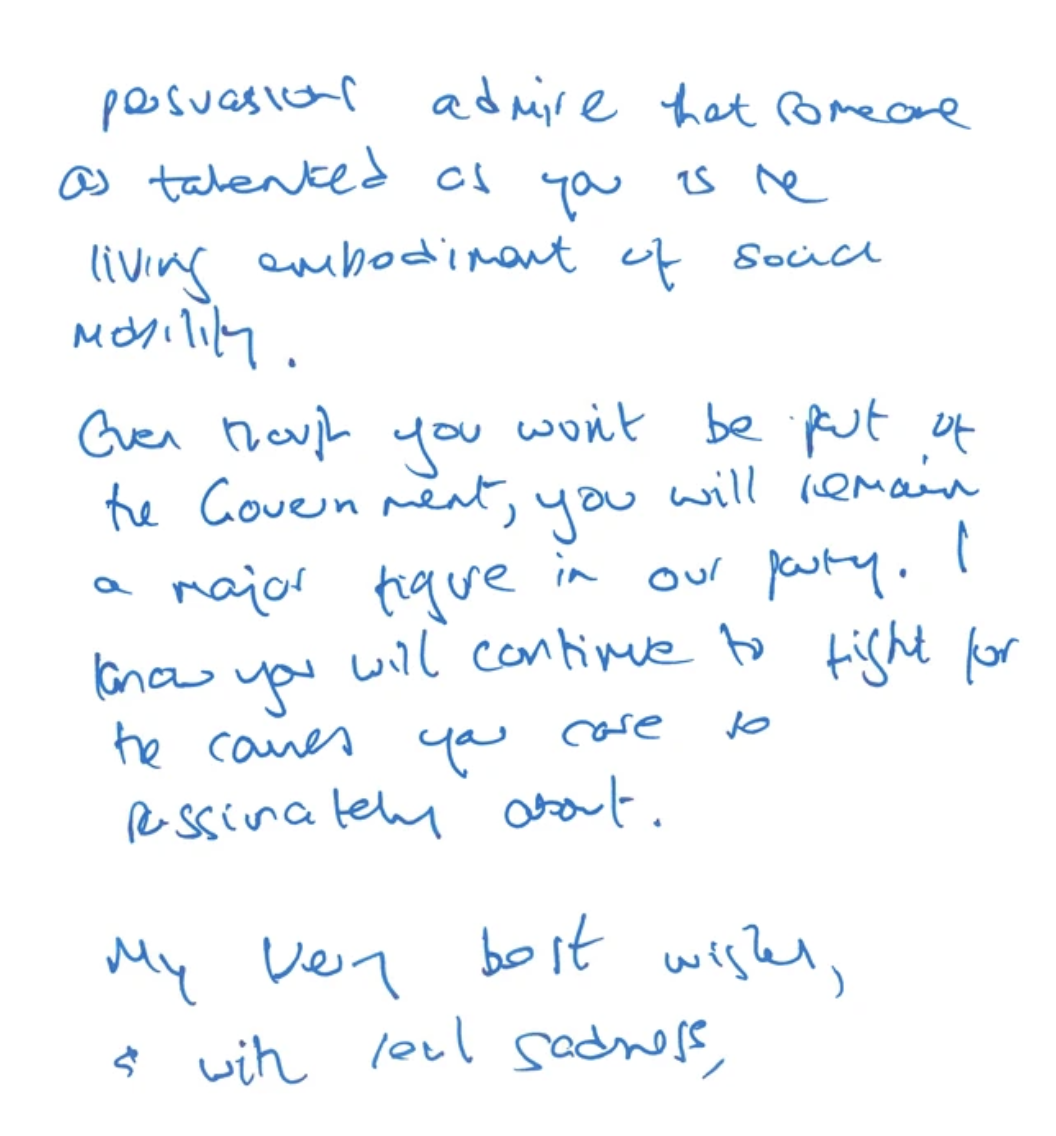 persuasion admire that someone
as talented as you is the
living embodiment of social
mobility.
Even though you won't be part of
the Government, you will remain
a major figure in our party. I
know you will continue to fight for
the causes you care so
passinately about.
My very best wishes,
& with real sadness,